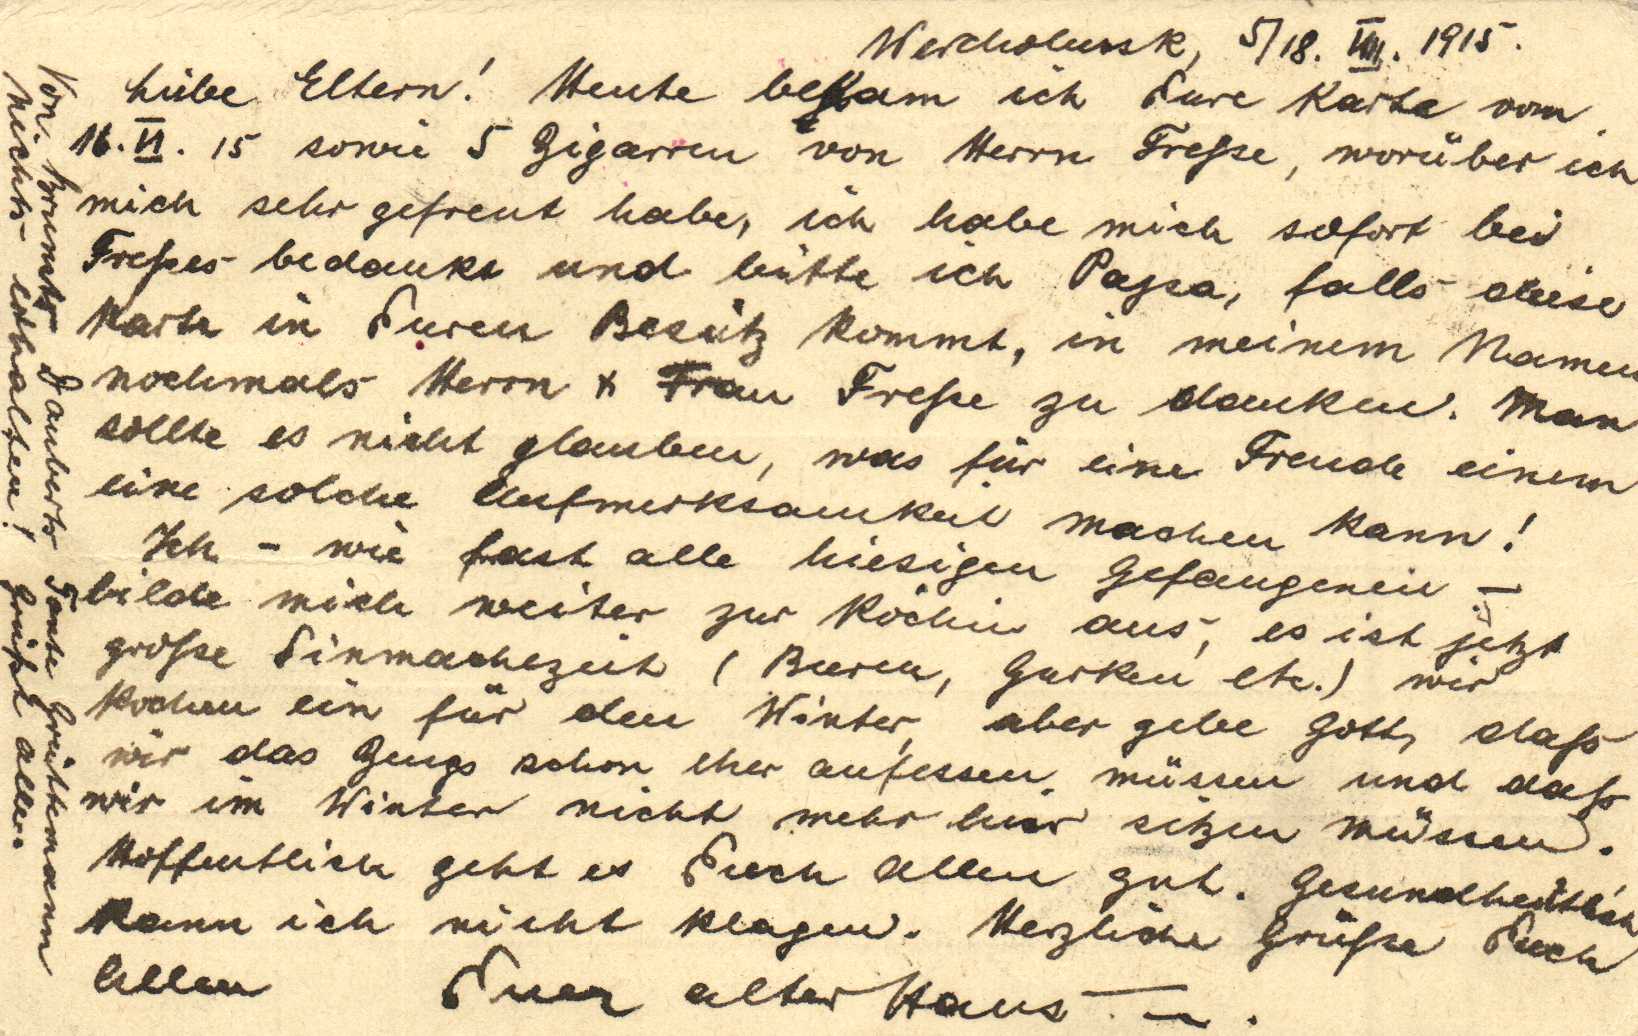 Wercholensk, 5/18. VIII. 1915.
Liebe Eltern! Heute bekam ich Eure Karte vom
16. VI. 15 sowie 5 Zigarren von Herrn Freßse, worüber ich
mich sehr gefreut habe, ich habe mich sofort bei
Freßes bedankt und bitte ich Papa, falls diese
Karte in Euren Besitz kommt, in meinem Namen
nochmals Herrn & Frau Freße zu danken. Man
sollte es nicht glauben, was für eine Freude einem
eine solche Aufmerksamkeit machen kann!
Ich - wie fast alle hiesigen Gefangenen -
bilde mich weiter zur Köchin aus, es ist jetzt
große Einmachezeit (Beeren, Gurken etc.) wir
kochen ein für den Winter, aber gebe Gott, daß
wir das Zeugs schon eher aufessen müssen und daß
wir im Winter nicht mehr hier sitzen müssen.
Hoffentlich geht es Euch allen gut. Gesundheitlich
kann ich nicht klagen. Herzliche Grüße Euch
Allen Euer alter Hans.
Von Daubertes Tante Grüttemann
nichts erhalten! Grüßt alle.